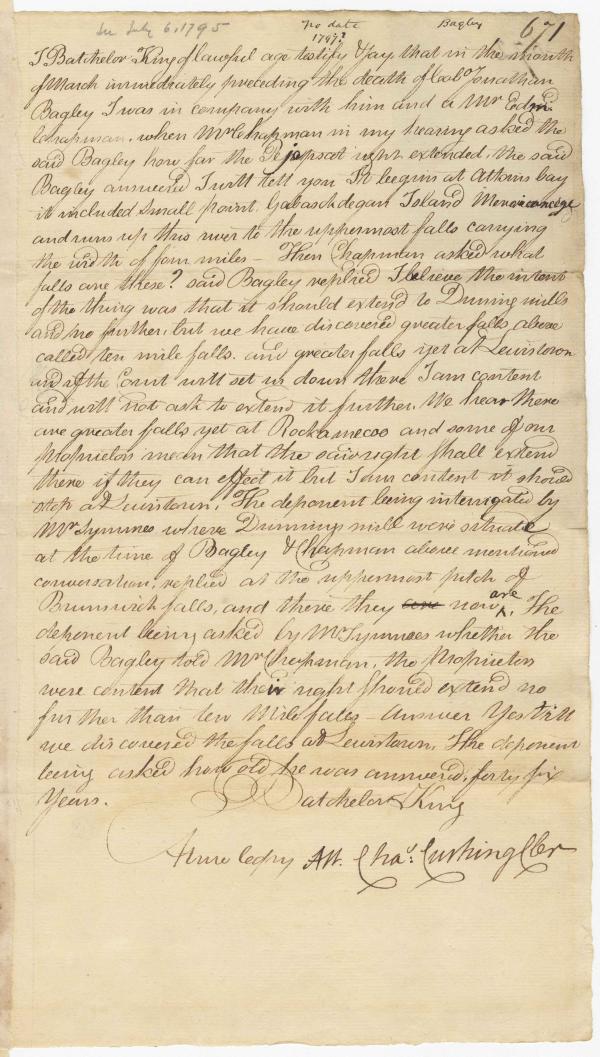 See July 6, 1795
No date
1747?
Bagley
671
I Batchelor King of lawful age testify & say that in the month
of March immediately preceding the death of Colo. Jonathan
Bagley I was in company with him and a Mr Edm
Chapman, when Mr Chapman in my hearing asked the
said Bagley how far the Pejepscot right extended, the said
Bagley answered I will tell you It begins at Atkins bay
it included small point, Gabaschdegan Island Merriconege
and runs up this river to the uppermost falls carrying
the width of four miles – Then Chapman asked what
falls are these? said Bagley replied I believe the intent
of the thing was that it should extend to Duning mills
and no further, but we have discovered greater falls above
called ten mile falls. and greater falls yet at Lewistown
and if the Court will set us down there I am content
and will not ask to extend it further. We hear there
are greater falls yet at Rockamecoo and some of our
Proprietors mean that the said right shall extend
there if they can effect it but I am content it should
stop at Lewistown. The deponent being interrogated by
Mr Symmes where Dunnings mill were situate
at the time of Bagley & Chapman above mentioned
conversation, replied at the uppermost pitch of
Brunswick falls, and there they are now are. The
deponent being asked by Mr Symmes whether the
said Bagley told Mr Chapman, the Proprietors
were content that their right should extend no
further than ten Mile falls – Answer Yes till
we discovered the falls at Lewistown. The deponent
being asked how old he was answered, forty six
Years. Batchelor King
A true Copy Att. Chas: Cushing Cler